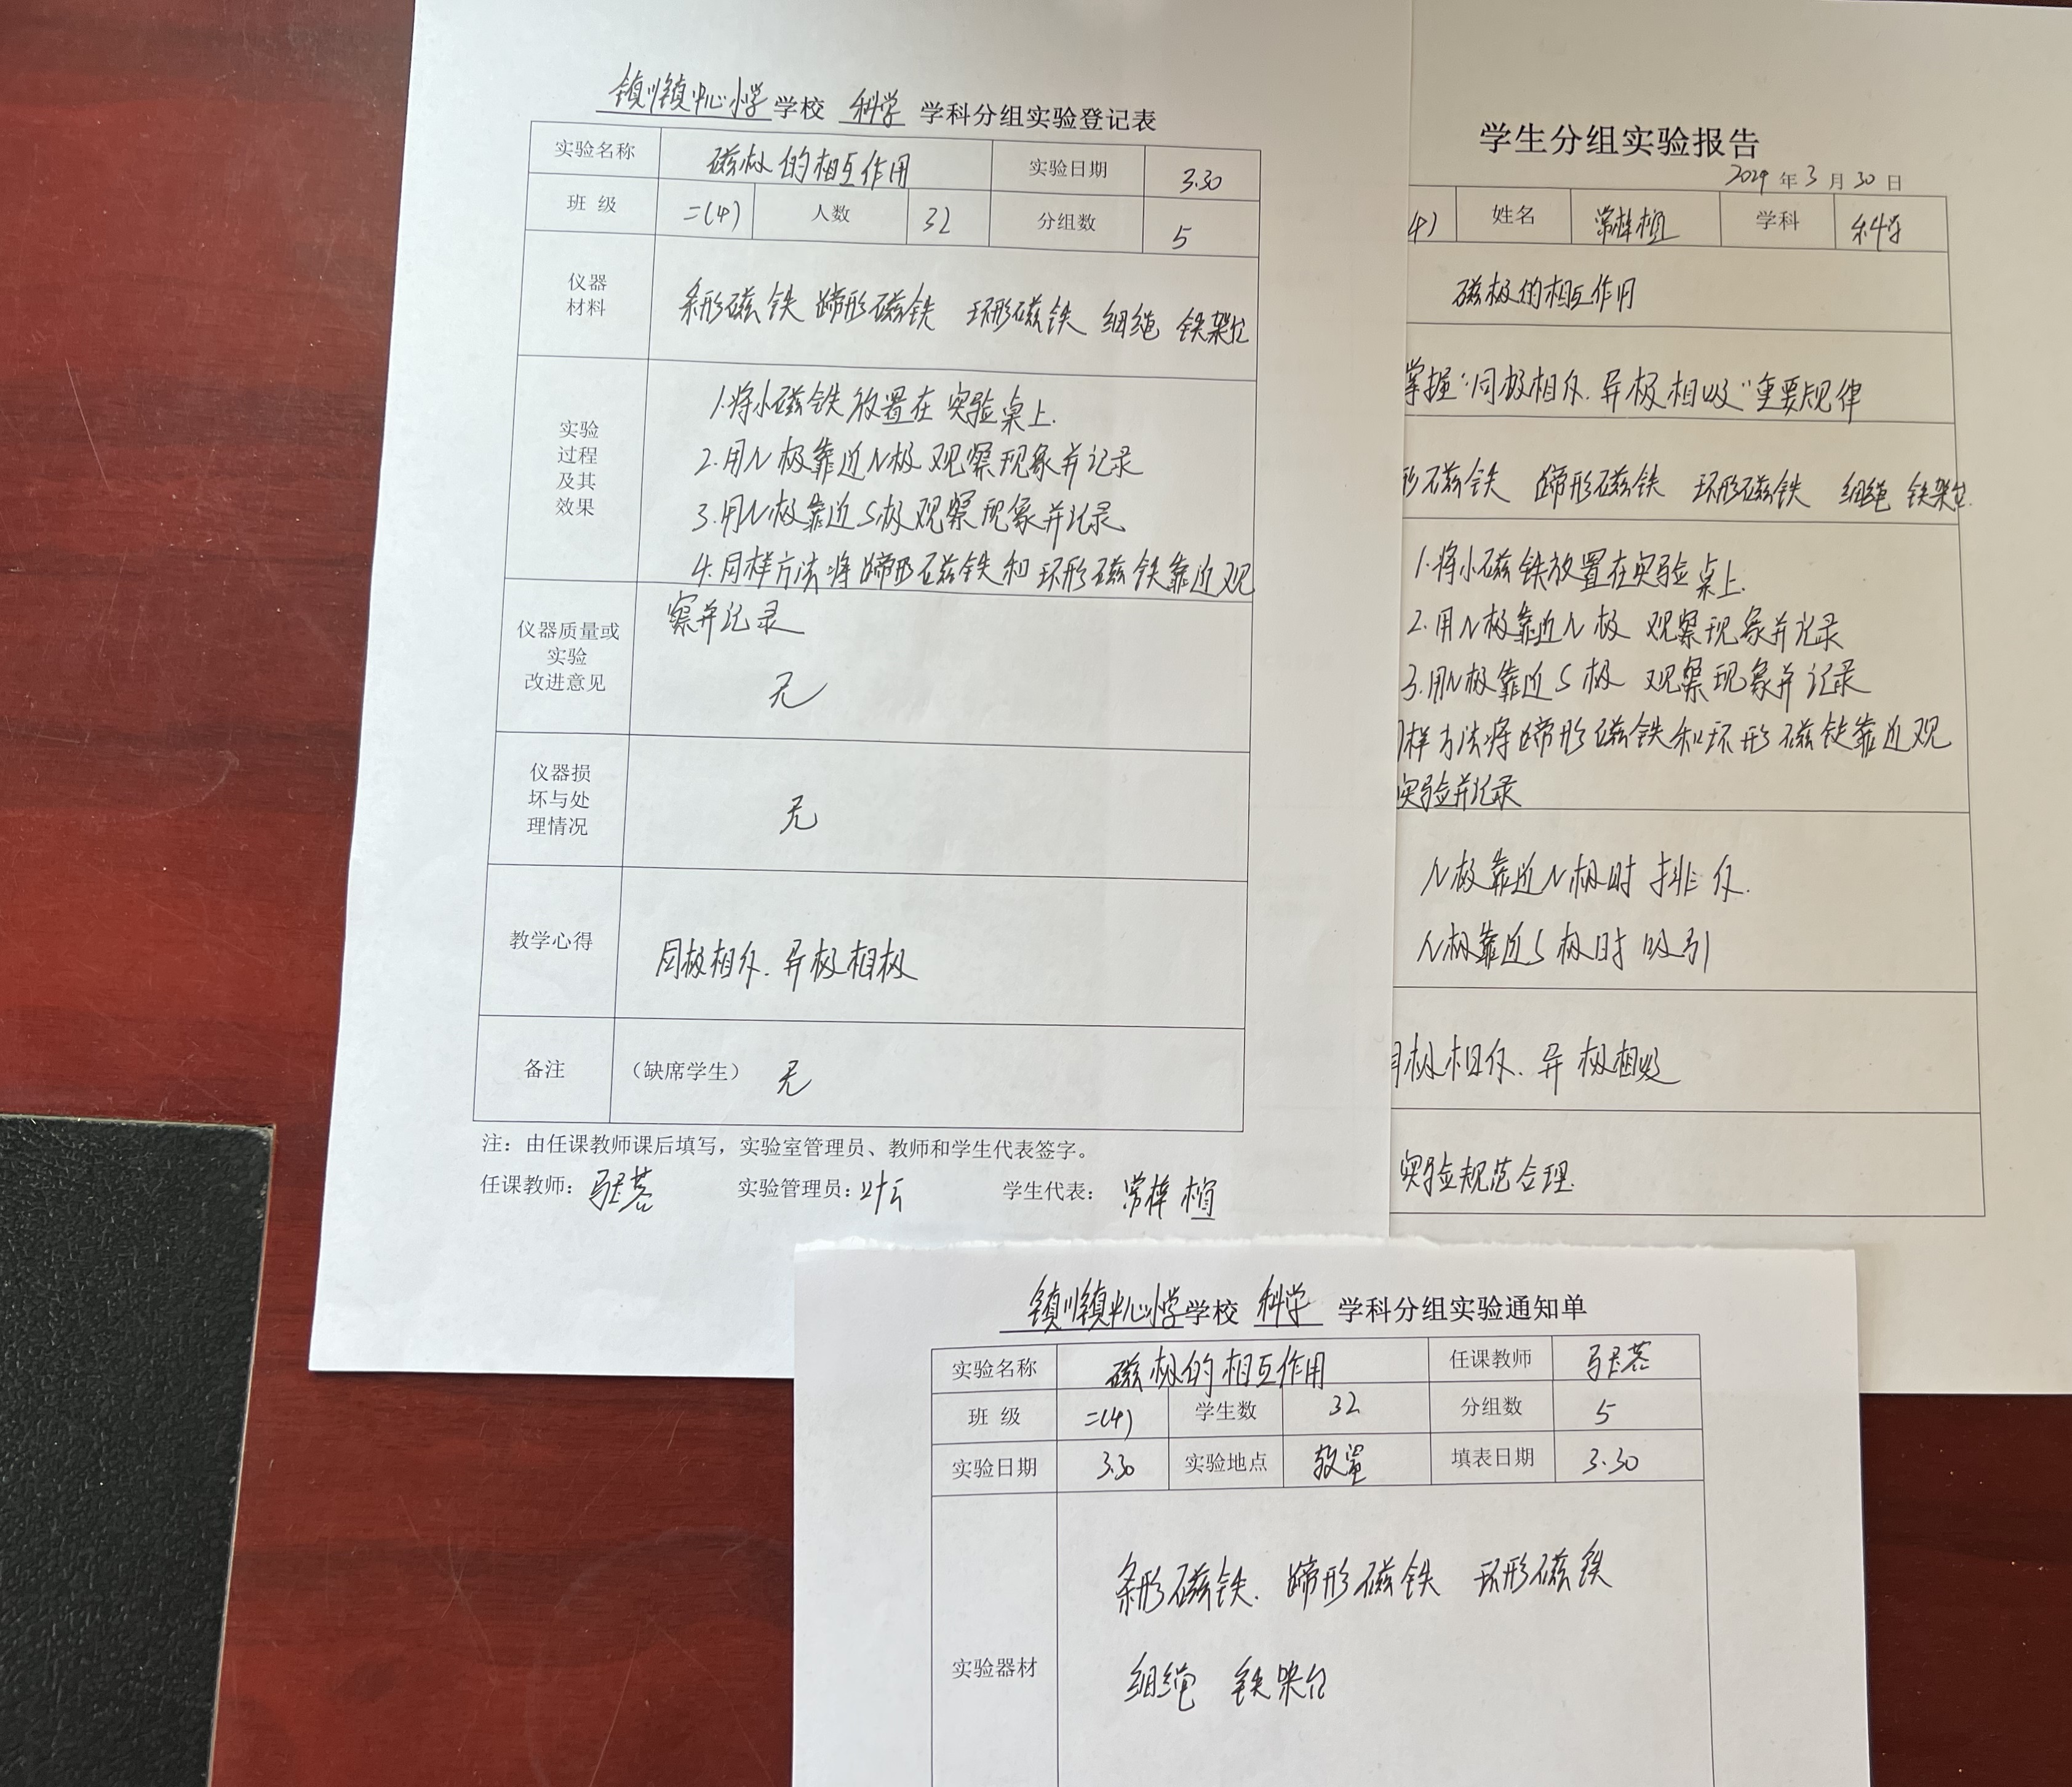 镇川镇中心小学学校 科学 学科分组实验登记表
实验名称 磁极的相互作用 实验日期 3.30
班级 二(4) 人数 32 分组数 5
仪器
材料
条形磁铁 蹄形磁铁 环形磁铁 细绳 铁架台
实验
过程
及其
效果
1.将小磁铁放置在实验桌上.
2.用N极靠近N极观察现象并记录
3.用N极靠近S极观察现象并记录
4.同样方法将蹄形磁铁和环形磁铁靠近观
察并记录
仪器质量或
实验
改进意见
无
仪器损
坏与处
理情况
无
教学心得 同极相斥.异极相极
备注 (缺席学生) 无
注：由任课教师课后填写，实验室管理员、教师和学生代表签字。
任课教师： 实验管理员： 学生代表：常梓植
学生分组实验报告
年 3 月 30 日
4) 姓名 常梓植 学科 科学
磁极的相互作用
掌握“同极相斥.异极相吸”重要规律
形磁铁 蹄形磁铁 环形磁铁 细绳 铁架台.
1.将小磁铁放置在实验桌上.
2.用N极靠近N极 观察现象并记录
3.用N极靠近S极 观察现象并记录
样方法将蹄形磁铁和环形磁铁靠近观
实验并记录
N极靠近N极时排斥.
N极靠近S极时吸引
同极相斥.异极相吸
实验规范合理.
镇川镇中心小学学校 科学 学科分组实验通知单
实验名称 磁极的相互作用 任课教师
班级 二(4) 学生数 32 分组数 5
实验日期 3.30 实验地点 教室 填表日期 3.30
条形磁铁. 蹄形磁铁 环形磁铁
实验器材 细绳 铁架台